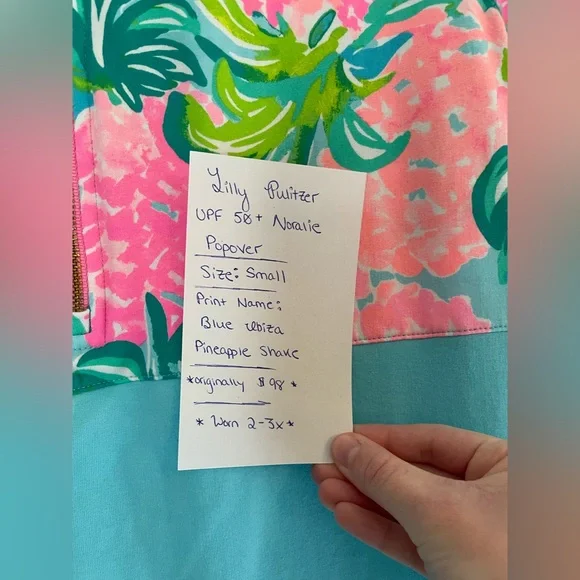 Lilly Pulitzer
UPF 50+ Noralie
Popover
Size: Small
Print Name:
Blue Ibiza
Pineapple Shake
*originally $98*
* Worn 2-3x*